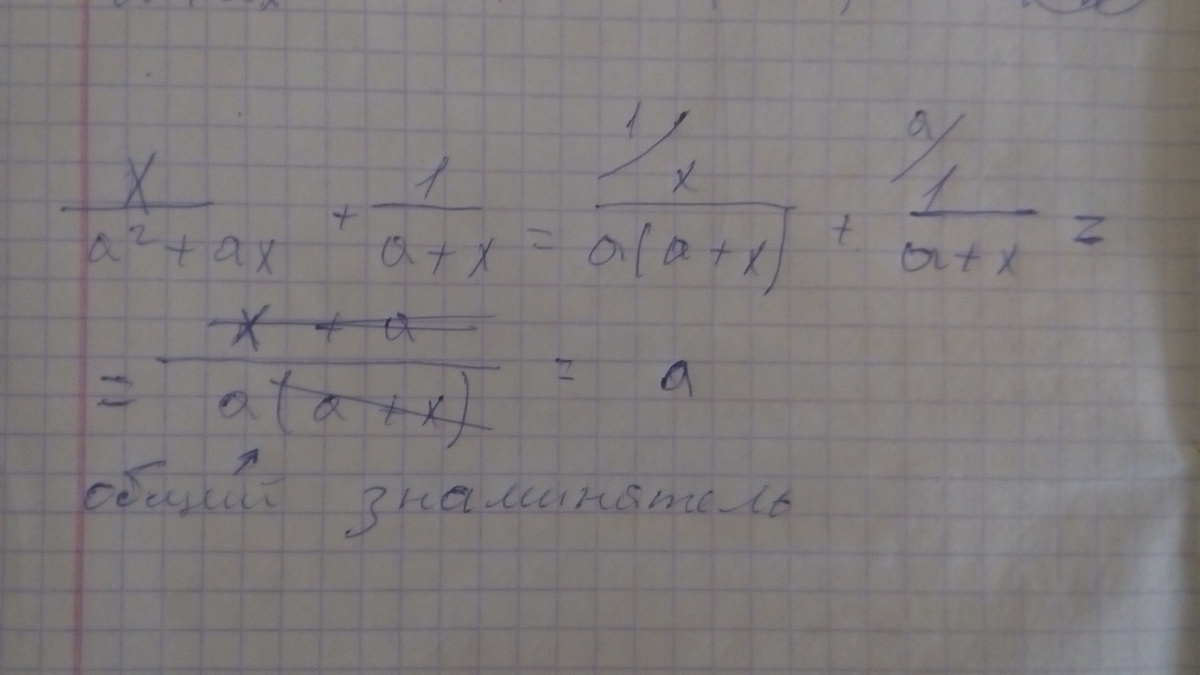 x/(a²+ax) + 1/(a+x) = 1/ x/(a(a+x)) + a/ 1/(a+x) =
= (x+a)/(a(a+x)) = a
общий знаминятель